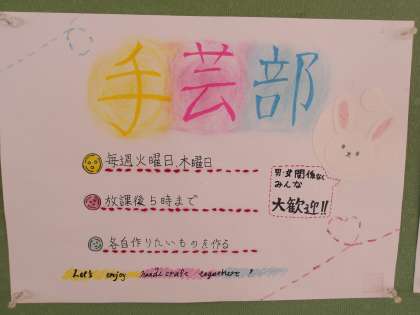 手芸部
毎週火曜日、木曜日
放課後5時まで
各自作りたいものを作る
男女関係なく
みんな
大歓迎!!
Let's enjoy handicrafts together!